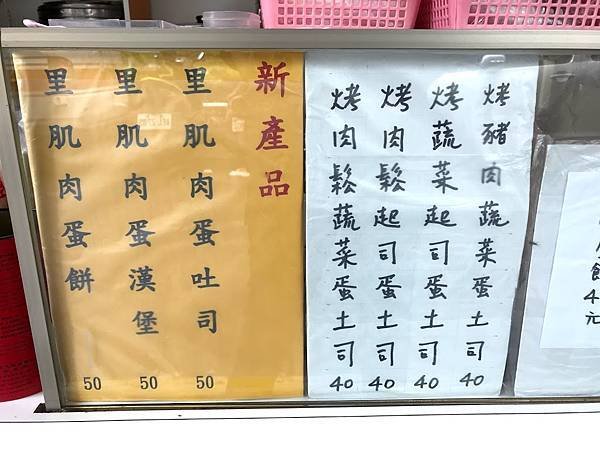 新產品
里肌肉蛋吐司 50
里肌肉蛋漢堡 50
里肌肉蛋餅 50
烤豬肉蔬菜蛋土司 40
烤蔬菜起司蛋土司 40
烤肉鬆起司蛋土司 40
烤肉鬆蔬菜蛋土司 40
餅4元